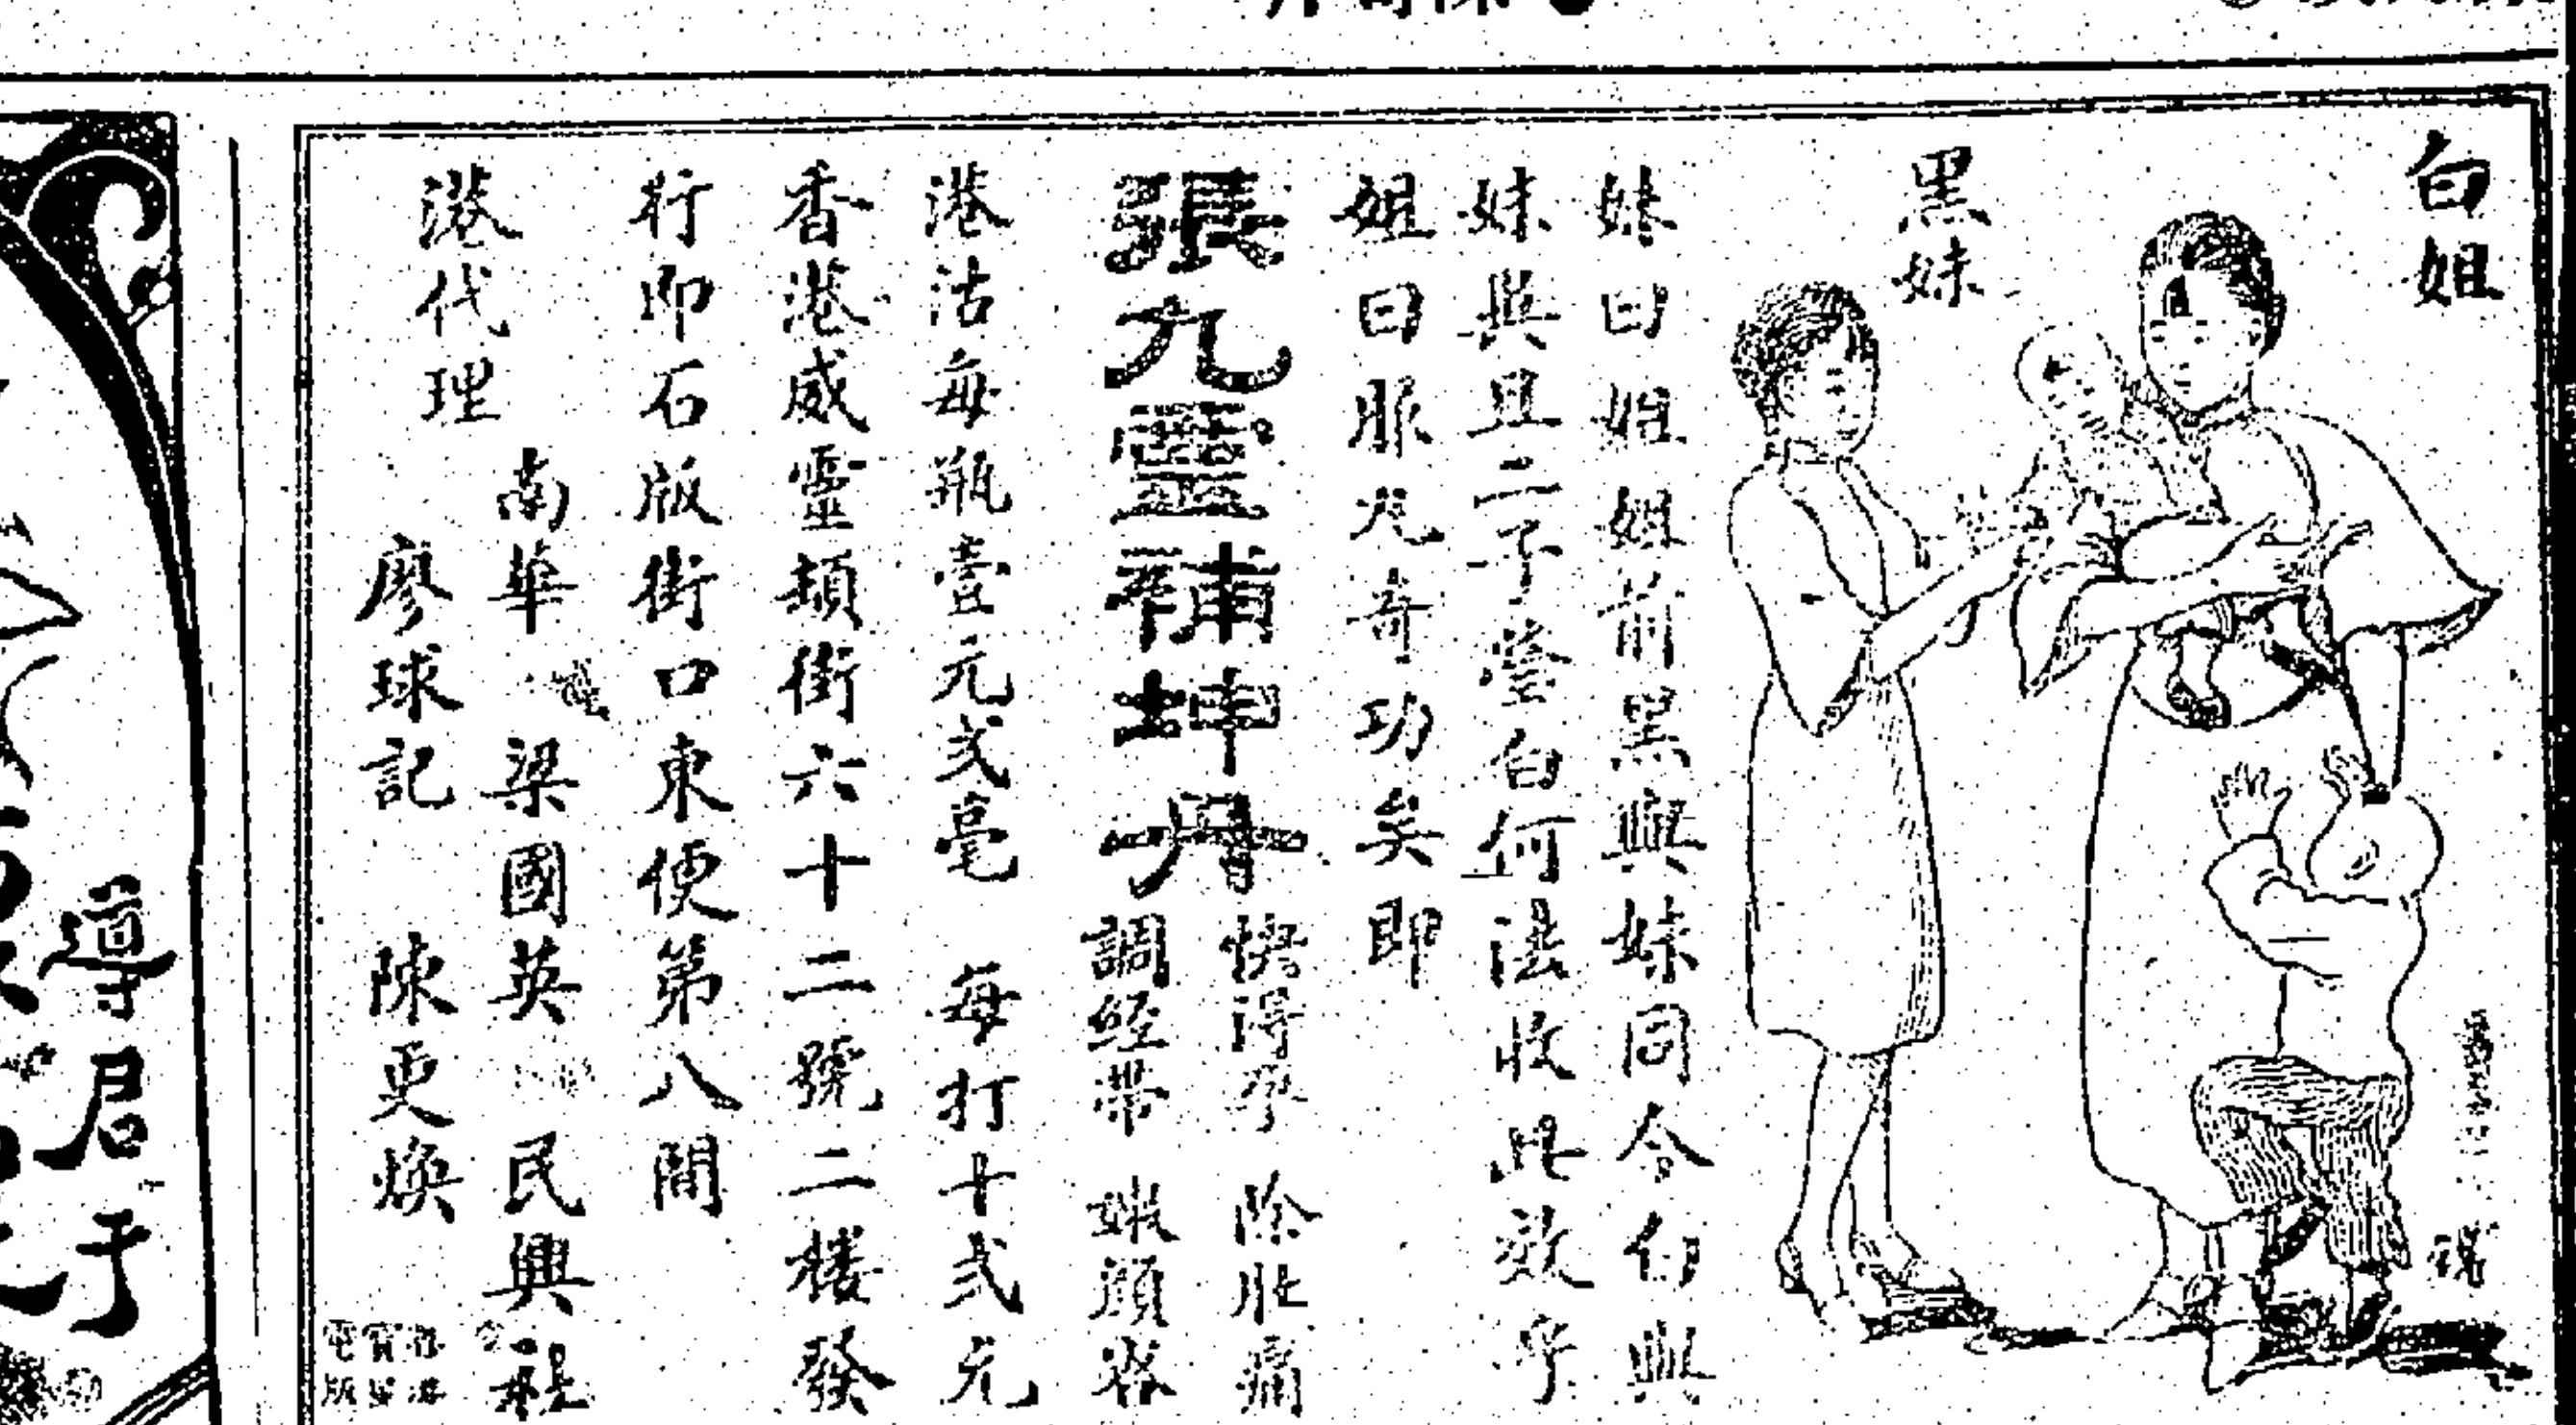 白姐
黑妹
妹曰姐姐前黑與妹同今白與
妹與且二子瑩白何法收此效乎
姐曰服九奇功矣即
張九靈補坤丹
快得孕 除肚痛
調經帶 嫩顏容
港沽每瓶壹元弍毫 每打十弍元
香港威靈頓街六十二號二楼發
行即石版街口東便第八間
港代理
南華 梁國英 民興社
廖球記 陳更煥
導君于